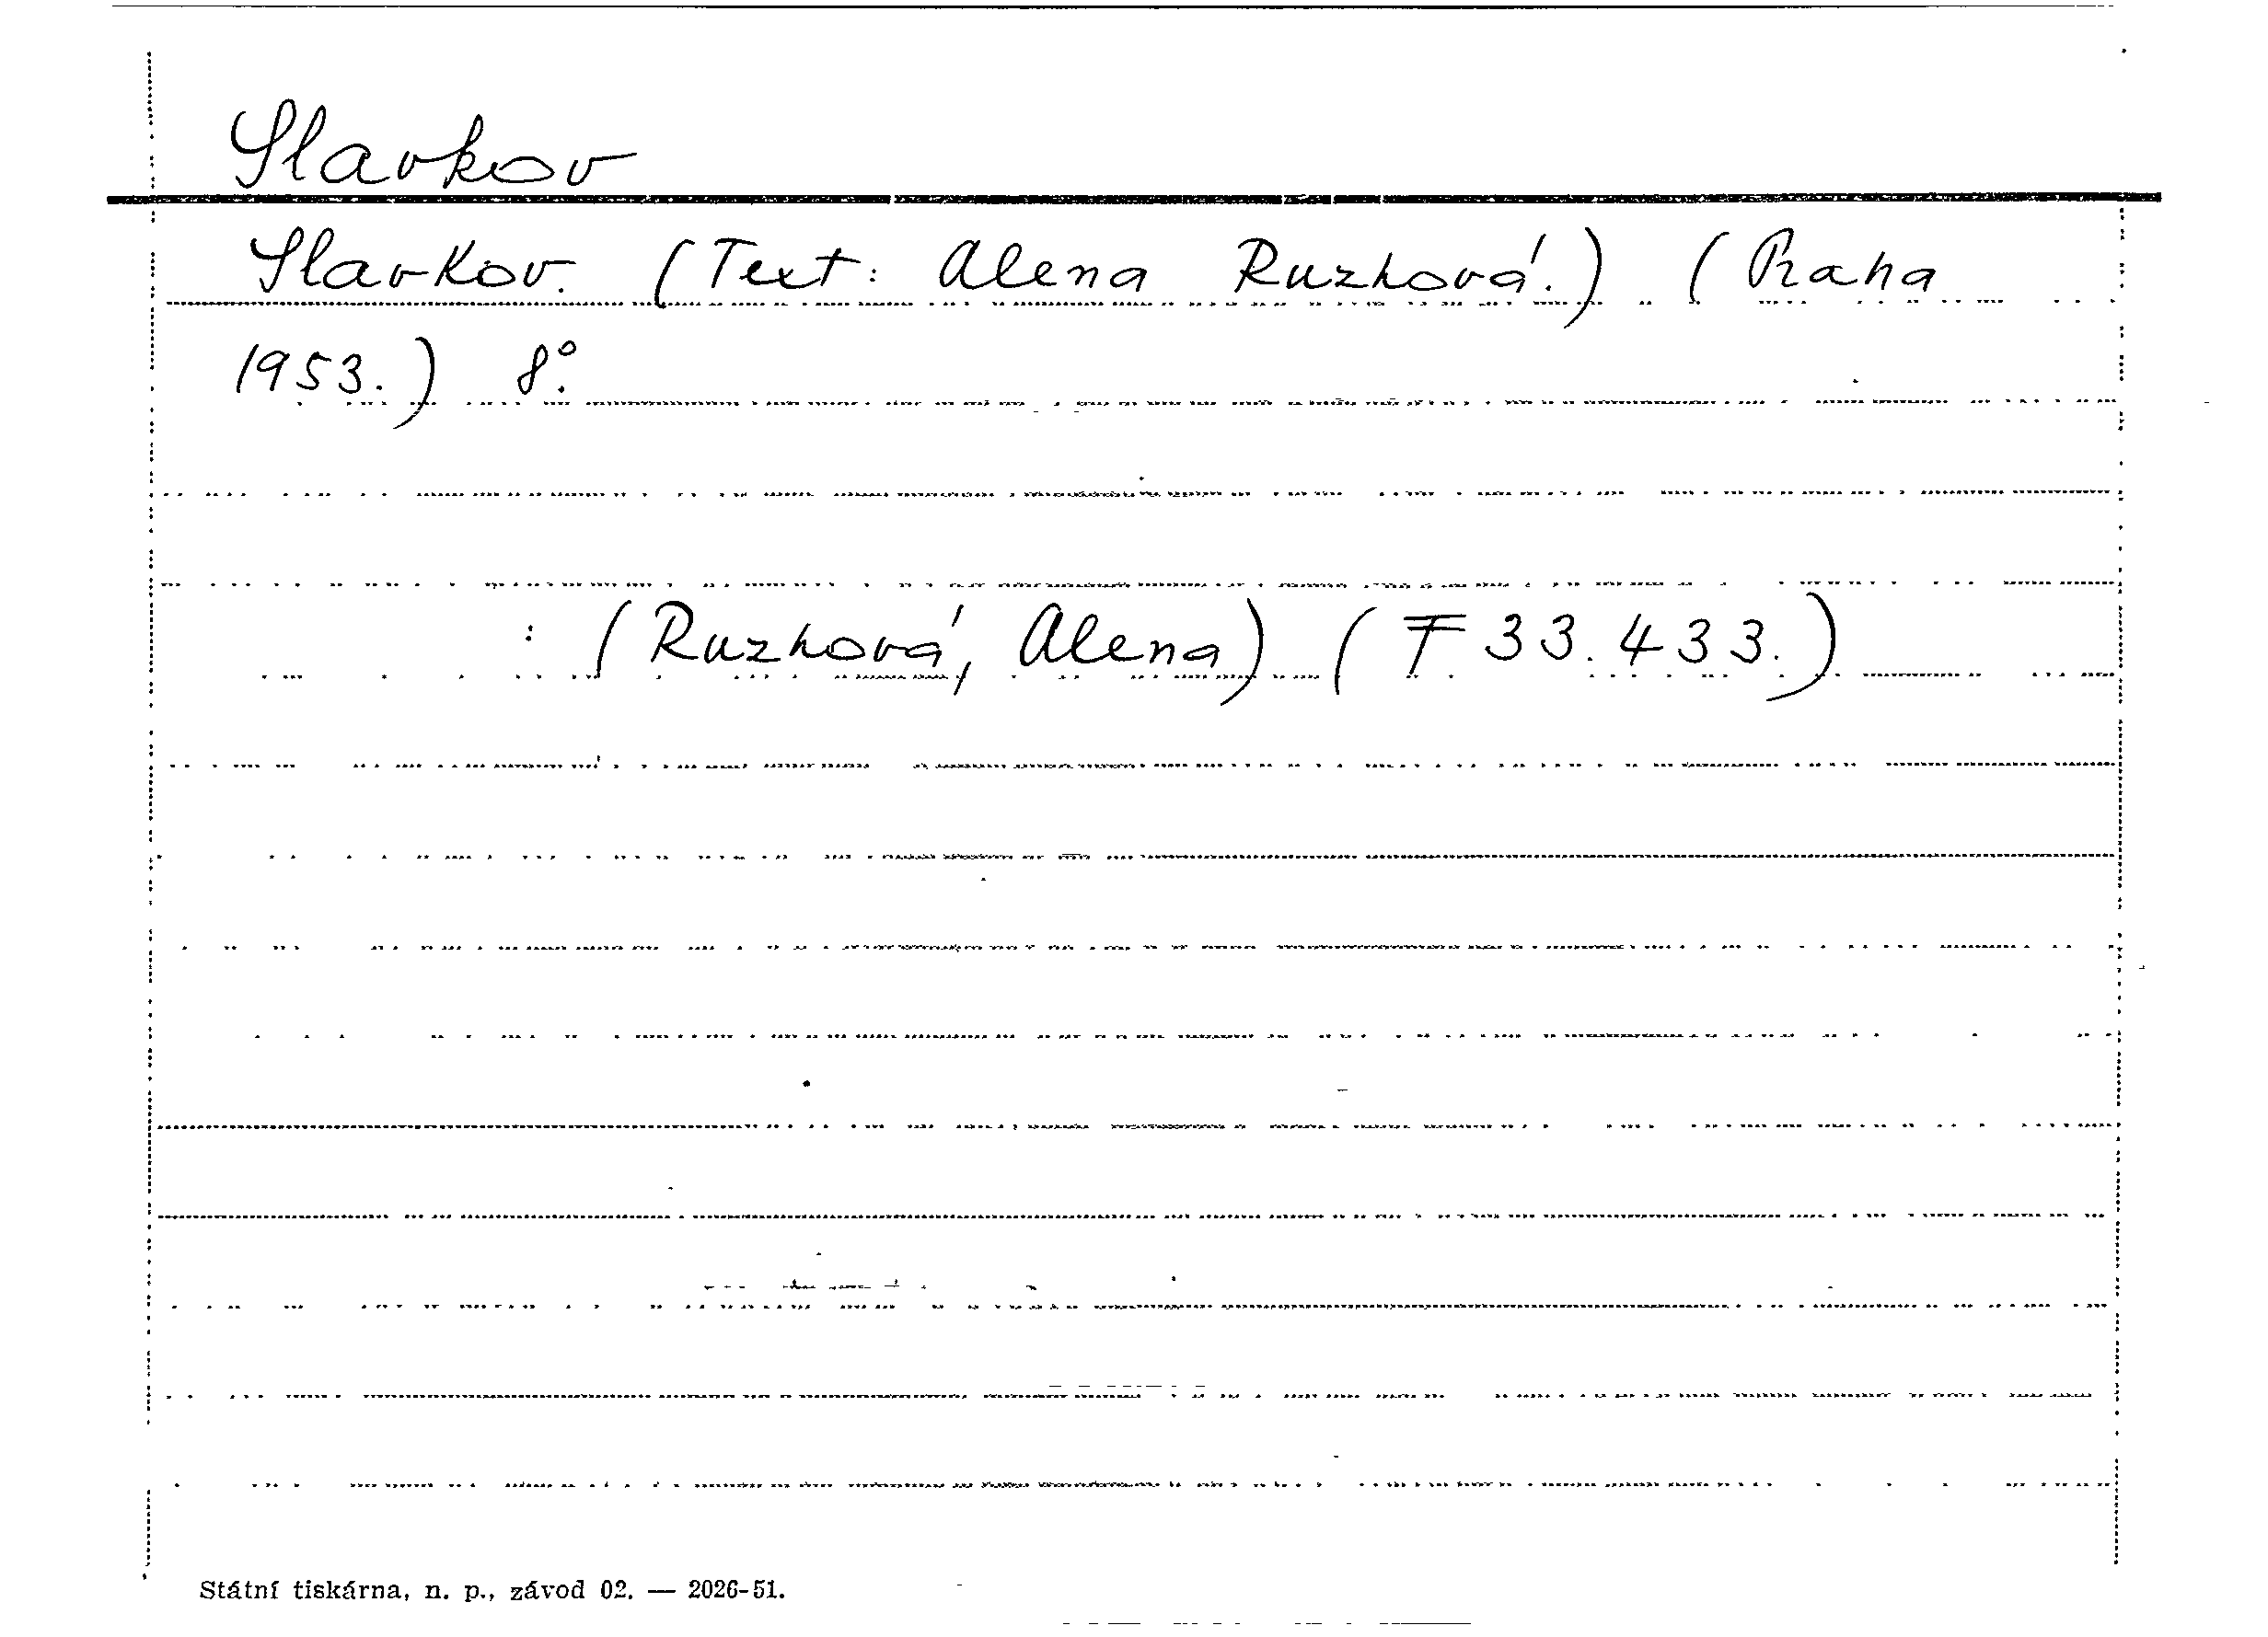 Slavkov
Slavkov. (Text: Alena Ruzhová.) (Praha
1953.) 8°.
: (Ruzhová, Alena) (F 33.433.)
Státní tiskárna, n. p., závod 02. — 2026-51.